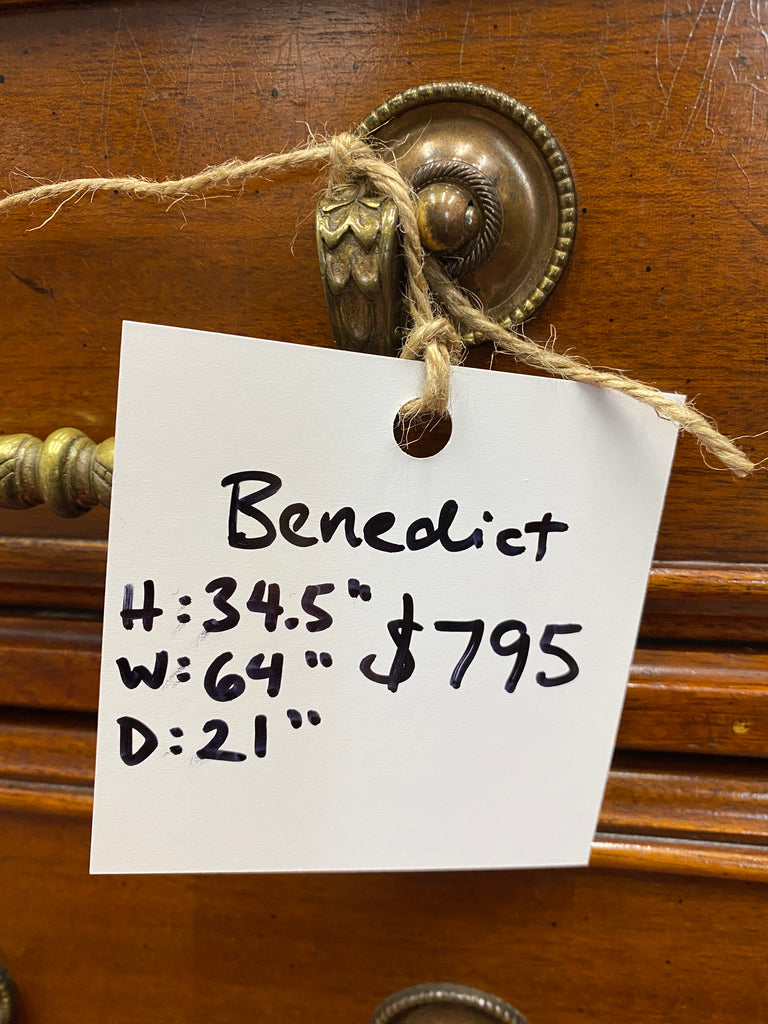 Benedict
H: 34.5"
W: 64" $795
D: 21"